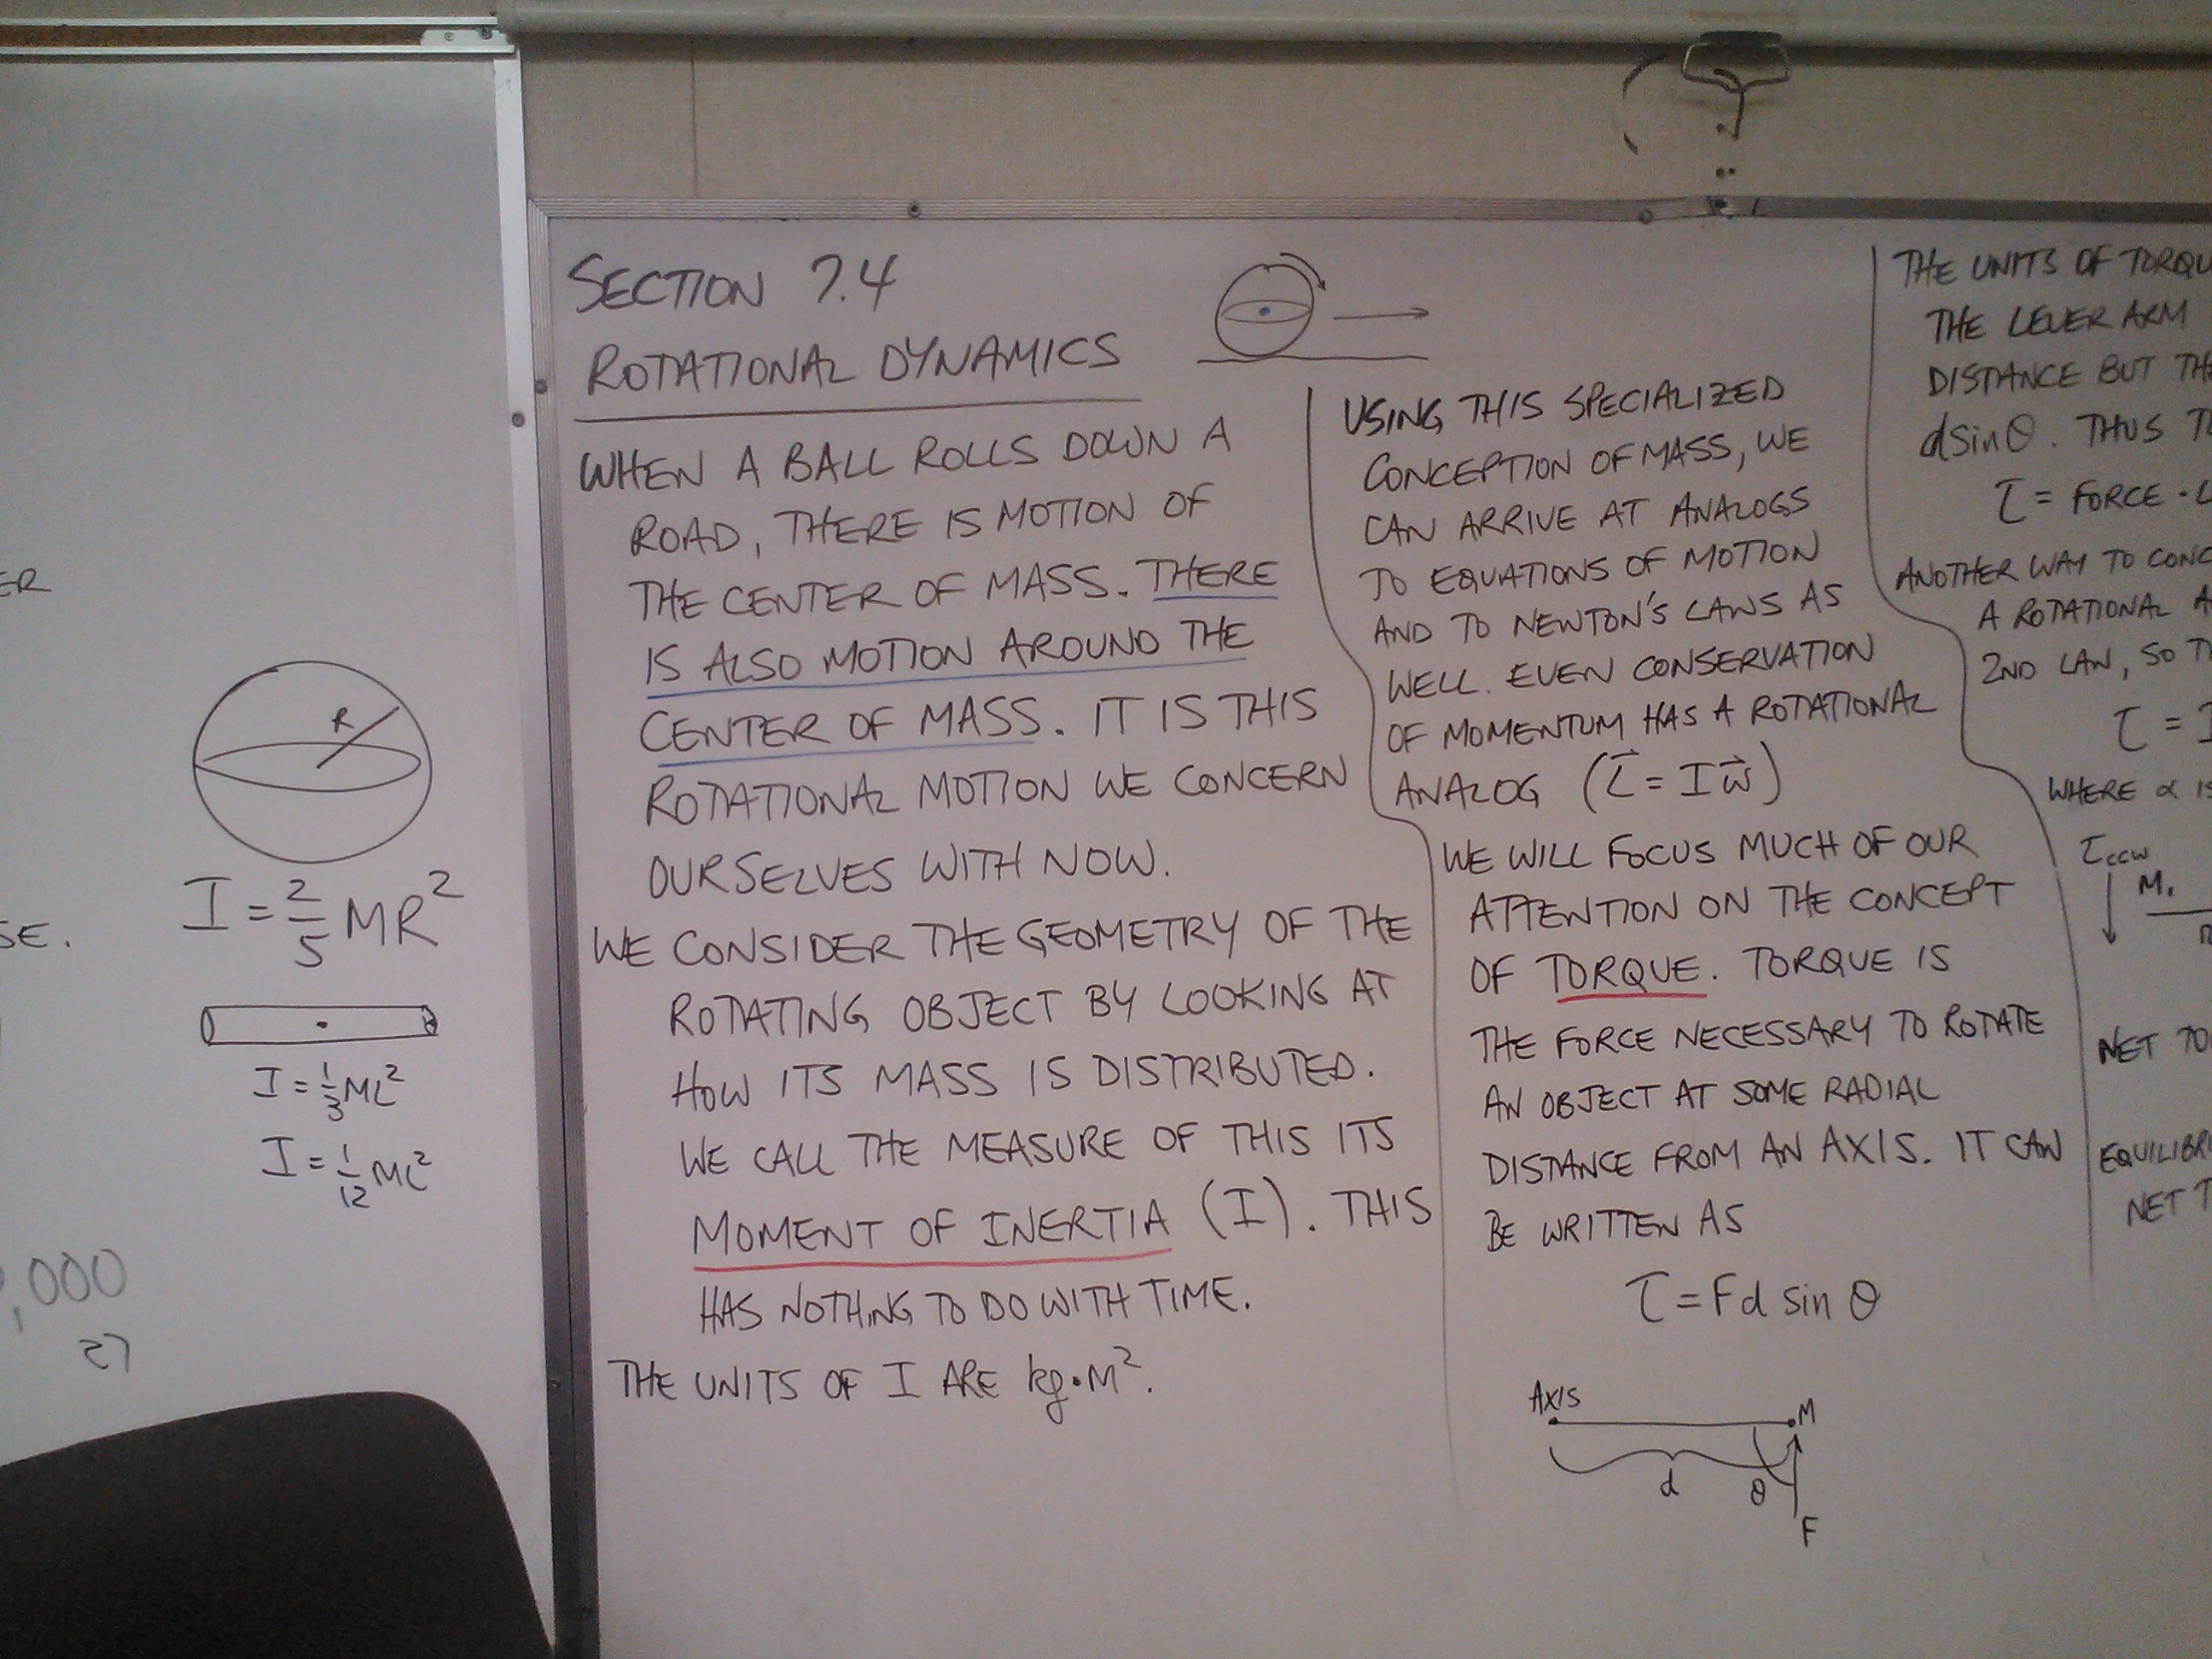 ER
SE.
R
I = 2/5 MR²
I = 1/3 ML²
I = 1/12 ML²
,000
27
SECTION 7.4
ROTATIONAL DYNAMICS
WHEN A BALL ROLLS DOWN A
ROAD, THERE IS MOTION OF
THE CENTER OF MASS. THERE
IS ALSO MOTION AROUND THE
CENTER OF MASS. IT IS THIS
ROTATIONAL MOTION WE CONCERN
OURSELVES WITH NOW.
WE CONSIDER THE GEOMETRY OF THE
ROTATING OBJECT BY LOOKING AT
HOW ITS MASS IS DISTRIBUTED.
WE CALL THE MEASURE OF THIS ITS
MOMENT OF INERTIA (I). THIS
HAS NOTHING TO DO WITH TIME.
THE UNITS OF I ARE kg·M².
USING THIS SPECIALIZED
CONCEPTION OF MASS, WE
CAN ARRIVE AT ANALOGS
TO EQUATIONS OF MOTION
AND TO NEWTON'S LAWS AS
WELL. EVEN CONSERVATION
OF MOMENTUM HAS A ROTATIONAL
ANALOG (L⃗ = Iω⃗)
WE WILL FOCUS MUCH OF OUR
ATTENTION ON THE CONCEPT
OF TORQUE. TORQUE IS
THE FORCE NECESSARY TO ROTATE
AN OBJECT AT SOME RADIAL
DISTANCE FROM AN AXIS. IT CAN
BE WRITTEN AS
τ = Fd sin θ
AXIS
M
d
θ
F
THE UNITS OF TORQU
THE LEVER ARM
DISTANCE BUT THE
dsinθ. THUS T
τ = FORCE · L
ANOTHER WAY TO CONC
A ROTATIONAL A
2ND LAW, SO T
τ = I
WHERE α IS
τccw
M₁
NET TO
EQUILIBRI
NET T